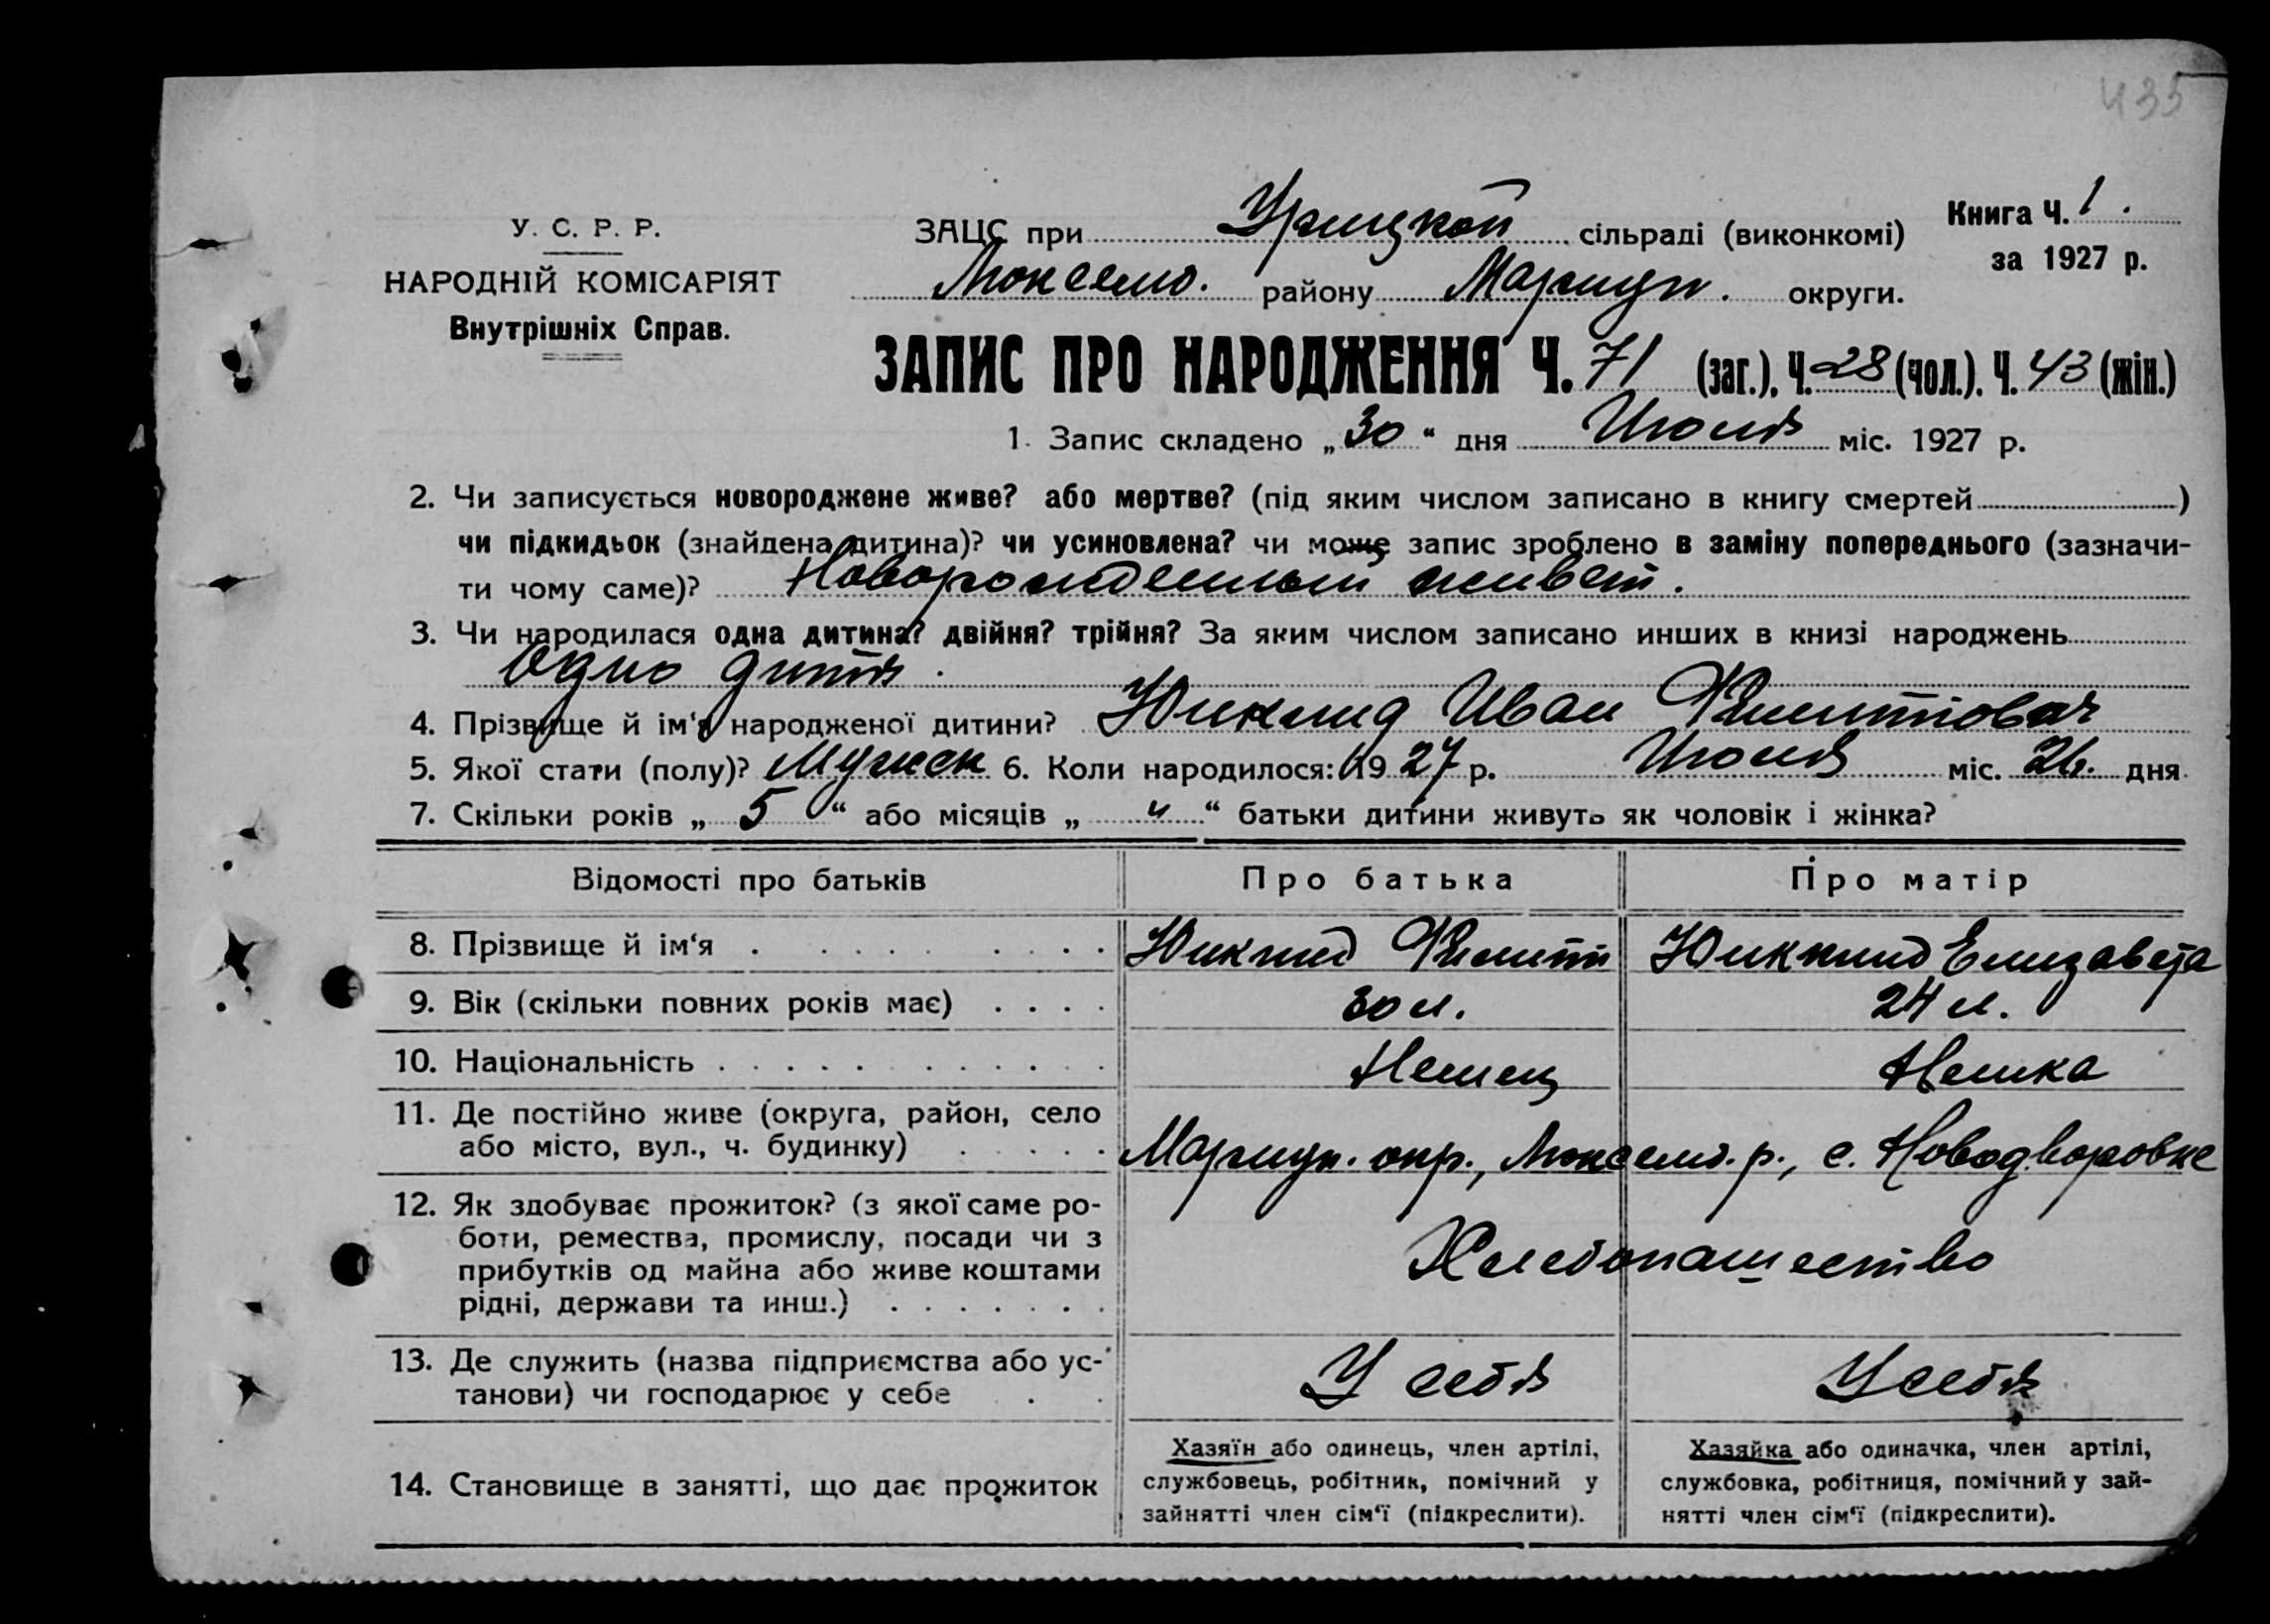 435
У. С. Р. Р.
НАРОДНІЙ КОМІСАРІЯТ
Внутрішніх Справ.
ЗАЦС при Урицкой сільраді (виконкомі)
Книга Ч. 1.
за 1927 р.
Люксемб. району Мариуп. округи.
ЗАПИС ПРО НАРОДЖЕННЯ Ч. 71 (заг.), Ч. 28 (чол.). Ч. 43 (жін.)
1. Запис складено „30“ дня Июля міс. 1927 р.
2. Чи записується новороджене живе? або мертве? (під яким числом записано в книгу смертей)
чи підкидьок (знайдена дитина)? чи усиновлена? чи може запис зроблено в заміну попереднього (зазначи-
ти чому саме)? Новорожденный живет.
3. Чи народилася одна дитина? двійня? трійня? За яким числом записано инших в книзі народжень
Одно дитя.
4. Прізвище й ім'я народженої дитини? Иван
5. Якої стати (полу)? Мужск 6. Коли народилося: 1927 р. Июля міс. 26. дня
7. Скільки років „5“ або місяців „ч“ батьки дитини живуть як чоловік і жінка?
Відомості про батьків Про батька Про матір
8. Прізвище й ім'я Елизавета
9. Вік (скільки повних років має) 30 л. 24 л.
10. Національність Немец Немка
11. Де постійно живе (округа, район, село
або місто, вул., ч. будинку) Мариуп. окр., Люксемб. р., с. Новодворовке
12. Як здобуває прожиток? (з якої саме ро-
боти, ремества, промислу, посади чи з
прибутків од майна або живе коштами
рідні, держави та инш.) Хлебопашество
13. Де служить (назва підприємства або ус-
танови) чи господарює у себе У себя У себя
14. Становище в занятті, що дає прожиток
Хазяїн або одинець, член артілі,
службовець, робітник, помічний у
зайнятті член сім'ї (підкреслити).
Хазяйка або одиначка, член артілі,
службовка, робітниця, помічний у зай-
нятті член сім'ї (підкреслити).